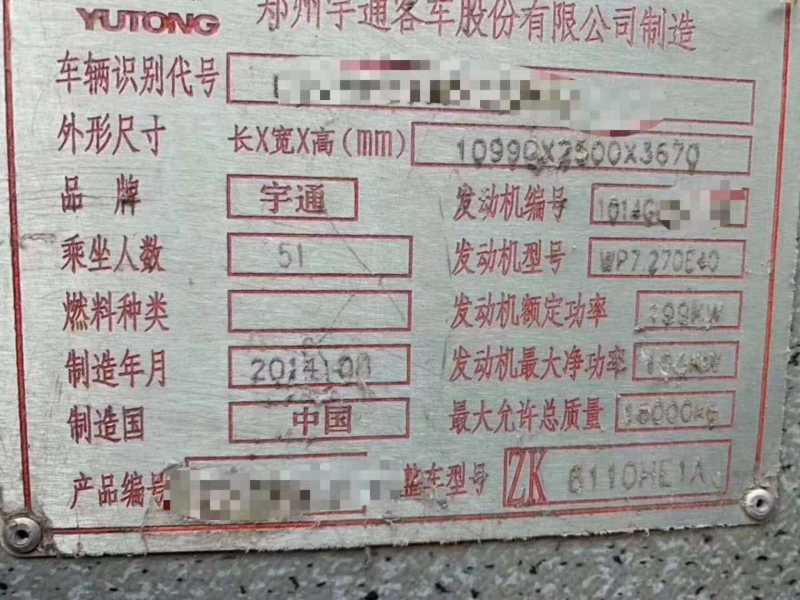 YUTONG 郑州宇通客车股份有限公司制造
车辆识别代号
外形尺寸 长X宽X高(mm) 10990X2500X3670
品牌 宇通 发动机编号
乘坐人数 51 发动机型号 WP7.270E40
燃料种类 发动机额定功率 199KW
制造年月 2014 发动机最大净功率
制造国 中国 最大允许总质量 16000kg
产品编号 整车型号 ZK 6110HE1A